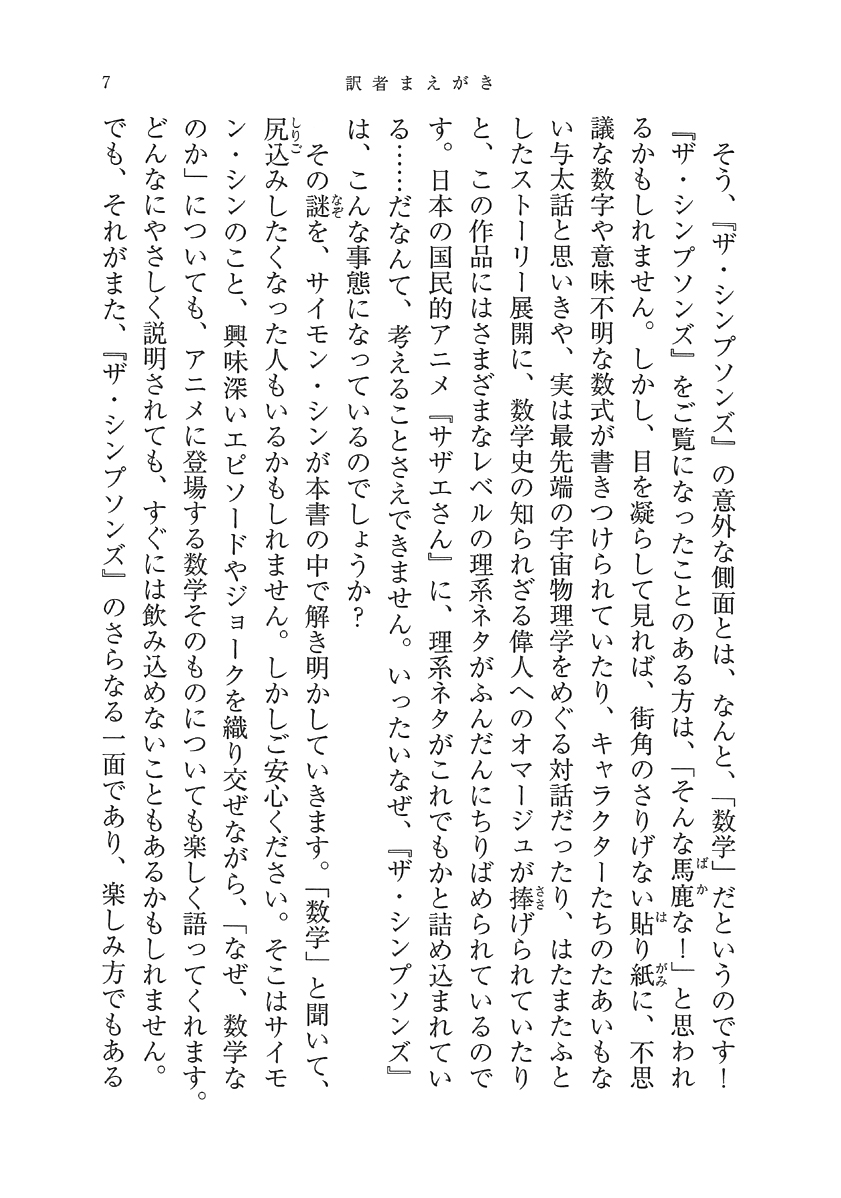 訳者まえがき
7
そう、『ザ・シンプソンズ』の意外な側面とは、なんと、「数学」だというのです！
『ザ・シンプソンズ』をご覧になったことのある方は、「そんな馬鹿な！」と思われ
るかもしれません。しかし、目を凝らして見れば、街角のさりげない貼り紙に、不思
議な数字や意味不明な数式が書きつけられていたり、キャラクターたちのたあいもな
い与太話と思いきや、実は最先端の宇宙物理学をめぐる対話だったり、はたまたふと
したストーリー展開に、数学史の知られざる偉人へのオマージュが捧げられていたり
と、この作品にはさまざまなレベルの理系ネタがふんだんにちりばめられているので
す。日本の国民的アニメ『サザエさん』に、理系ネタがこれでもかと詰め込まれてい
る……だなんて、考えることさえできません。いったいなぜ、『ザ・シンプソンズ』
は、こんな事態になっているのでしょうか？
その謎を、サイモン・シンが本書の中で解き明かしていきます。「数学」と聞いて、
尻込みしたくなった人もいるかもしれません。しかしご安心ください。そこはサイモ
ン・シンのこと、興味深いエピソードやジョークを織り交ぜながら、「なぜ、数学な
のか」についても、アニメに登場する数学そのものについても楽しく語ってくれます。
どんなにやさしく説明されても、すぐには飲み込めないこともあるかもしれません。
でも、それがまた、『ザ・シンプソンズ』のさらなる一面であり、楽しみ方でもある